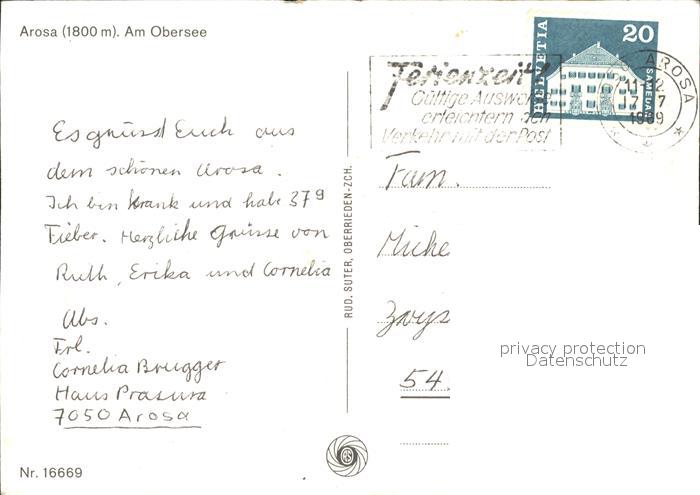 Arosa (1800 m). Am Obersee
HELVETIA
20
SAMEDAN
AROSA
11-12
17.-7
1969
Ferienzeit
Gültige Ausweise
erleichtern den
Verkehr mit der Post
Es grüsst Euch aus
dem schönen Arosa.
Ich bin krank und habe 37⁹
Fieber. Herzliche Grüsse von
Ruth, Erika und Cornelia
Abs.
Frl.
Cornelia Brugger
Haus Prasura
7050 Arosa
RUD. SUTER, OBERRIEDEN-ZCH.
Fam.
54.
privacy protection
Datenschutz
RS
Nr. 16669